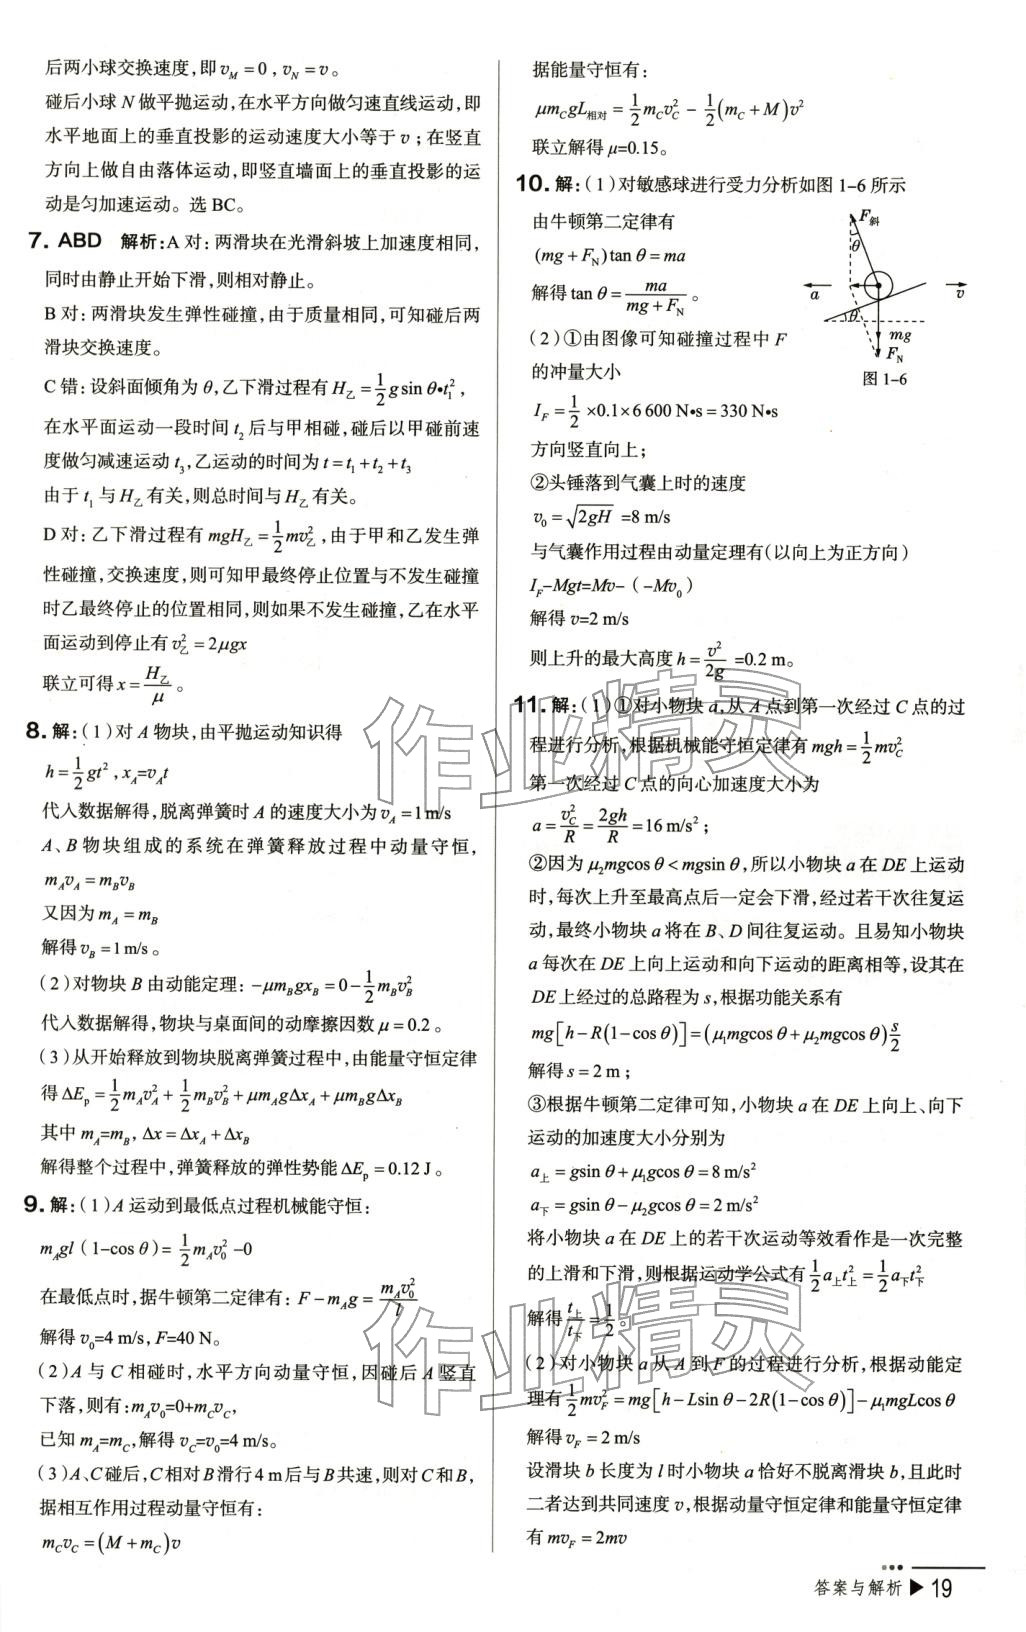 后两小球交换速度,即 v_M = 0 , v_N = v。
碰后小球 N 做平抛运动,在水平方向做匀速直线运动,即
水平地面上的垂直投影的运动速度大小等于 v ;在竖直
方向上做自由落体运动,即竖直墙面上的垂直投影的运
动是匀加速运动。选 BC。
7. ABD 解析:A 对:两滑块在光滑斜坡上加速度相同,
同时由静止开始下滑,则相对静止。
B 对:两滑块发生弹性碰撞,由于质量相同,可知碰后两
滑块交换速度。
C 错:设斜面倾角为 θ,乙下滑过程有 H_乙 = 1/2 g sin θ•t₁² ,
在水平面运动一段时间 t₂ 后与甲相碰,碰后以甲碰前速
度做匀减速运动 t₃,乙运动的时间为 t = t₁ + t₂ + t₃
由于 t₁ 与 H_乙 有关,则总时间与 H_乙 有关。
D 对:乙下滑过程有 mgH_乙 = 1/2 mv_乙² ,由于甲和乙发生弹
性碰撞,交换速度,则可知甲最终停止位置与不发生碰撞
时乙最终停止的位置相同,则如果不发生碰撞,乙在水平
面运动到停止有 v_乙² = 2μgx
联立可得 x = H_乙/μ 。
8. 解:(1)对 A 物块,由平抛运动知识得
h = 1/2 gt² , x_A=v_A t
代入数据解得,脱离弹簧时 A 的速度大小为 v_A = 1 m/s
A、B 物块组成的系统在弹簧释放过程中动量守恒,
m_A v_A = m_B v_B
又因为 m_A = m_B
解得 v_B = 1 m/s 。
(2)对物块 B 由动能定理: -μm_B gx_B = 0 - 1/2 m_B v_B²
代入数据解得,物块与桌面间的动摩擦因数 μ = 0.2 。
(3)从开始释放到物块脱离弹簧过程中,由能量守恒定律
得 ΔE_p = 1/2 m_A v_A² + 1/2 m_B v_B² + μm_A gΔx_A + μm_B gΔx_B
其中 m_A=m_B, Δx = Δx_A + Δx_B
解得整个过程中,弹簧释放的弹性势能 ΔE_p = 0.12 J 。
9. 解:(1)A 运动到最低点过程机械能守恒:
m_A gl(1-cos θ)= 1/2 m_A v₀² -0
在最低点时,据牛顿第二定律有: F - m_A g = m_A v₀²/l
解得 v₀=4 m/s, F=40 N。
(2)A 与 C 相碰时,水平方向动量守恒,因碰后 A 竖直
下落,则有:m_A v₀=0+m_C v_C,
已知 m_A=m_C,解得 v_C=v₀=4 m/s。
(3)A、C 碰后,C 相对 B 滑行 4 m 后与 B 共速,则对 C 和 B,
据相互作用过程动量守恒有:
m_C v_C = (M + m_C)v
据能量守恒有:
μm_C gL_相对 = 1/2 m_C v_C² - 1/2 (m_C + M)v²
联立解得 μ=0.15。
10. 解:(1)对敏感球进行受力分析如图 1-6 所示
由牛顿第二定律有
(mg + F_N)tan θ = ma
解得 tan θ = ma/(mg + F_N) 。
F_斜
θ
a
v
θ
mg
F_N
图 1-6
(2)①由图像可知碰撞过程中 F
的冲量大小
I_F = 1/2 ×0.1×6 600 N•s = 330 N•s
方向竖直向上;
②头锤落到气囊上时的速度
v₀ = √2gH =8 m/s
与气囊作用过程由动量定理有(以向上为正方向)
I_F-Mgt=Mv-(-Mv₀)
解得 v=2 m/s
则上升的最大高度 h = v²/2g =0.2 m。
11. 解:(1)①对小物块 a,从 A 点到第一次经过 C 点的过
程进行分析,根据机械能守恒定律有 mgh = 1/2 mv_C²
第一次经过 C 点的向心加速度大小为
a = v_C²/R = 2gh/R =16 m/s² ;
②因为 μ₂mgcos θ < mgsin θ,所以小物块 a 在 DE 上运动
时,每次上升至最高点后一定会下滑,经过若干次往复运
动,最终小物块 a 将在 B、D 间往复运动。且易知小物块
a 每次在 DE 上向上运动和向下运动的距离相等,设其在
DE 上经过的总路程为 s,根据功能关系有
mg[h-R(1-cos θ)]=(μ₁mgcos θ+μ₂mgcos θ)s/2
解得 s = 2 m ;
③根据牛顿第二定律可知,小物块 a 在 DE 上向上、向下
运动的加速度大小分别为
a_上 = gsin θ + μ₁gcos θ = 8 m/s²
a_下 = gsin θ - μ₂gcos θ = 2 m/s²
将小物块 a 在 DE 上的若干次运动等效看作是一次完整
的上滑和下滑,则根据运动学公式有 1/2 a_上 t_上² = 1/2 a_下 t_下²
解得 t_上/t_下 = 1/2。
(2)对小物块 a 从 A 到 F 的过程进行分析,根据动能定
理有 1/2 mv_F² = mg[h-Lsin θ-2R(1-cos θ)]-μ₁mgLcos θ
解得 v_F = 2 m/s
设滑块 b 长度为 l 时小物块 a 恰好不脱离滑块,且此时
二者达到共同速度 v,根据动量守恒定律和能量守恒定律
有 mv_F = 2mv
答案与解析 ▶ 19
作业精灵
作业精灵